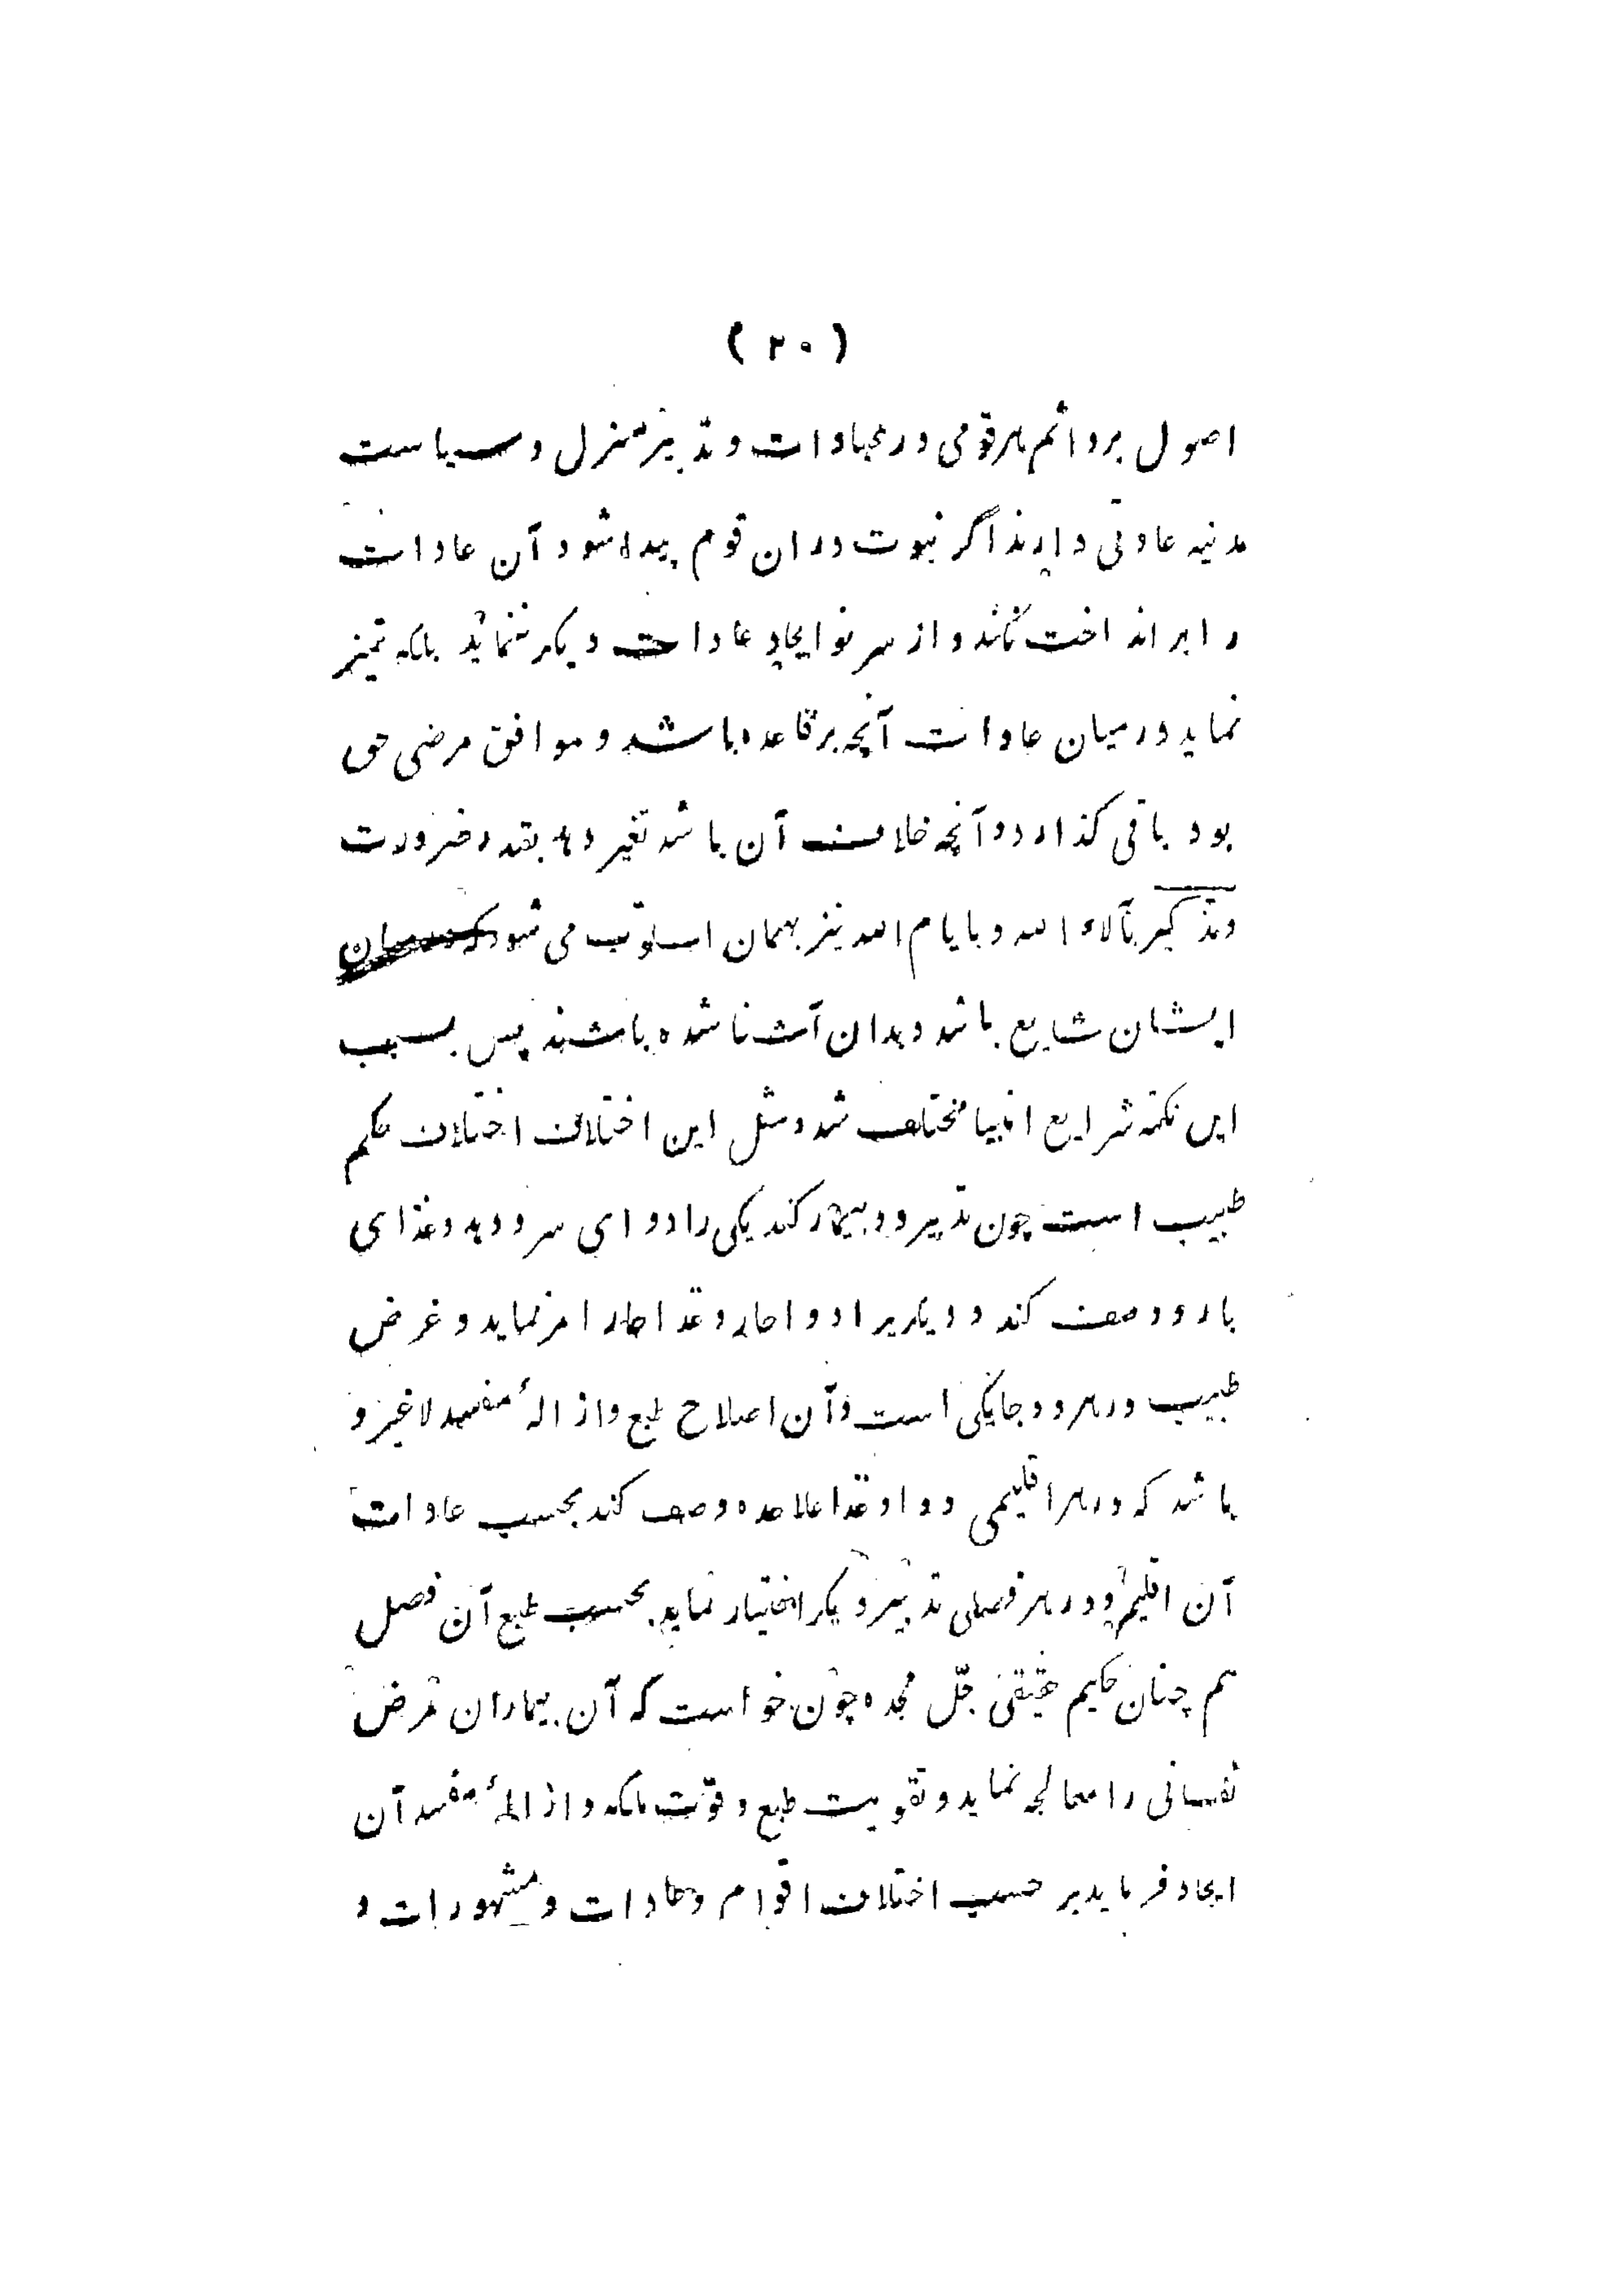 (۲۰)
اصول بر و اثم هر قومی در عبادات و تدبیر منزل و سیاست
مدنیه عادتی دارند اگر نبوت در ان قوم پیدا شود آن عادات
را بر انداخت نکند و از سر نو ایجاد عادات دیگر ننماید بلکه تمیز
نماید در میان عادات آنچه بر قاعده باشد و موافق مرضی حق
بود باقی گذارد و آنچه خلاف آن باشد تغیر دهد بقدر ضرورت
و تذکیر بآلاء الله و بایام الله نیز بهمان اسلوب می شود که در میان
ایشان شایع باشد و بدان آشنا شده باشند پس بسبب
این نکته شرایع انبیا مختلف شد و مثل این اختلاف اختلاف حکم
طبیب است چون تدبیر دو بیمار کند یکی را دوای سرد دهد و غذای
بارد وصف کند و دیگریرا دوا حار و غذا حار امر نماید و غرض
طبیب در هر دو جا یکی است و آن اصلاح طبع و ازالۀ مفسد لا غیر و
باشد که در هر اقلیمی دوا و غذا علاحده وصف کند بحسب عادات
آن اقلیم و در هر فصلی تدبیر دیگر اختیار نماید بحسب طبع آن فصل
هم چنان حکیم حقیقی جلّ مجده چون خواست که آن بیماران مرض
نفسانی را معالجه نماید و تقویت طبع و قوّت ملکه و ازالۀ مفسد آن
ایجاد فرماید بر حسب اختلاف اقوام و عادات و مشهورات و